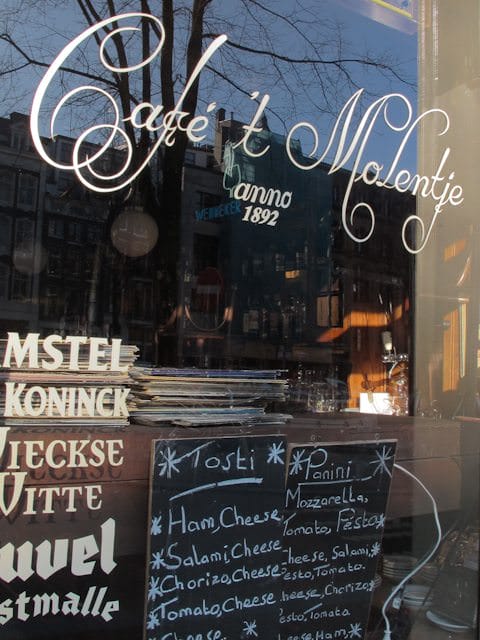 Café 't Molentje
anno
1892
MSTEL
KONINCK
WIECKSE
WITTE
uvel
stmalle
* Tosti *
* Ham, Cheese
* Salami, Cheese
* Chorizo, Cheese
* Tomato, Cheese
Cheese
* Panini *
Mozzarella,
Tomato, Pesto *
Cheese, Salami, *
Pesto, Tomato.
heese, Chorizo, *
Pesto, Tomato
heese, Ham, *